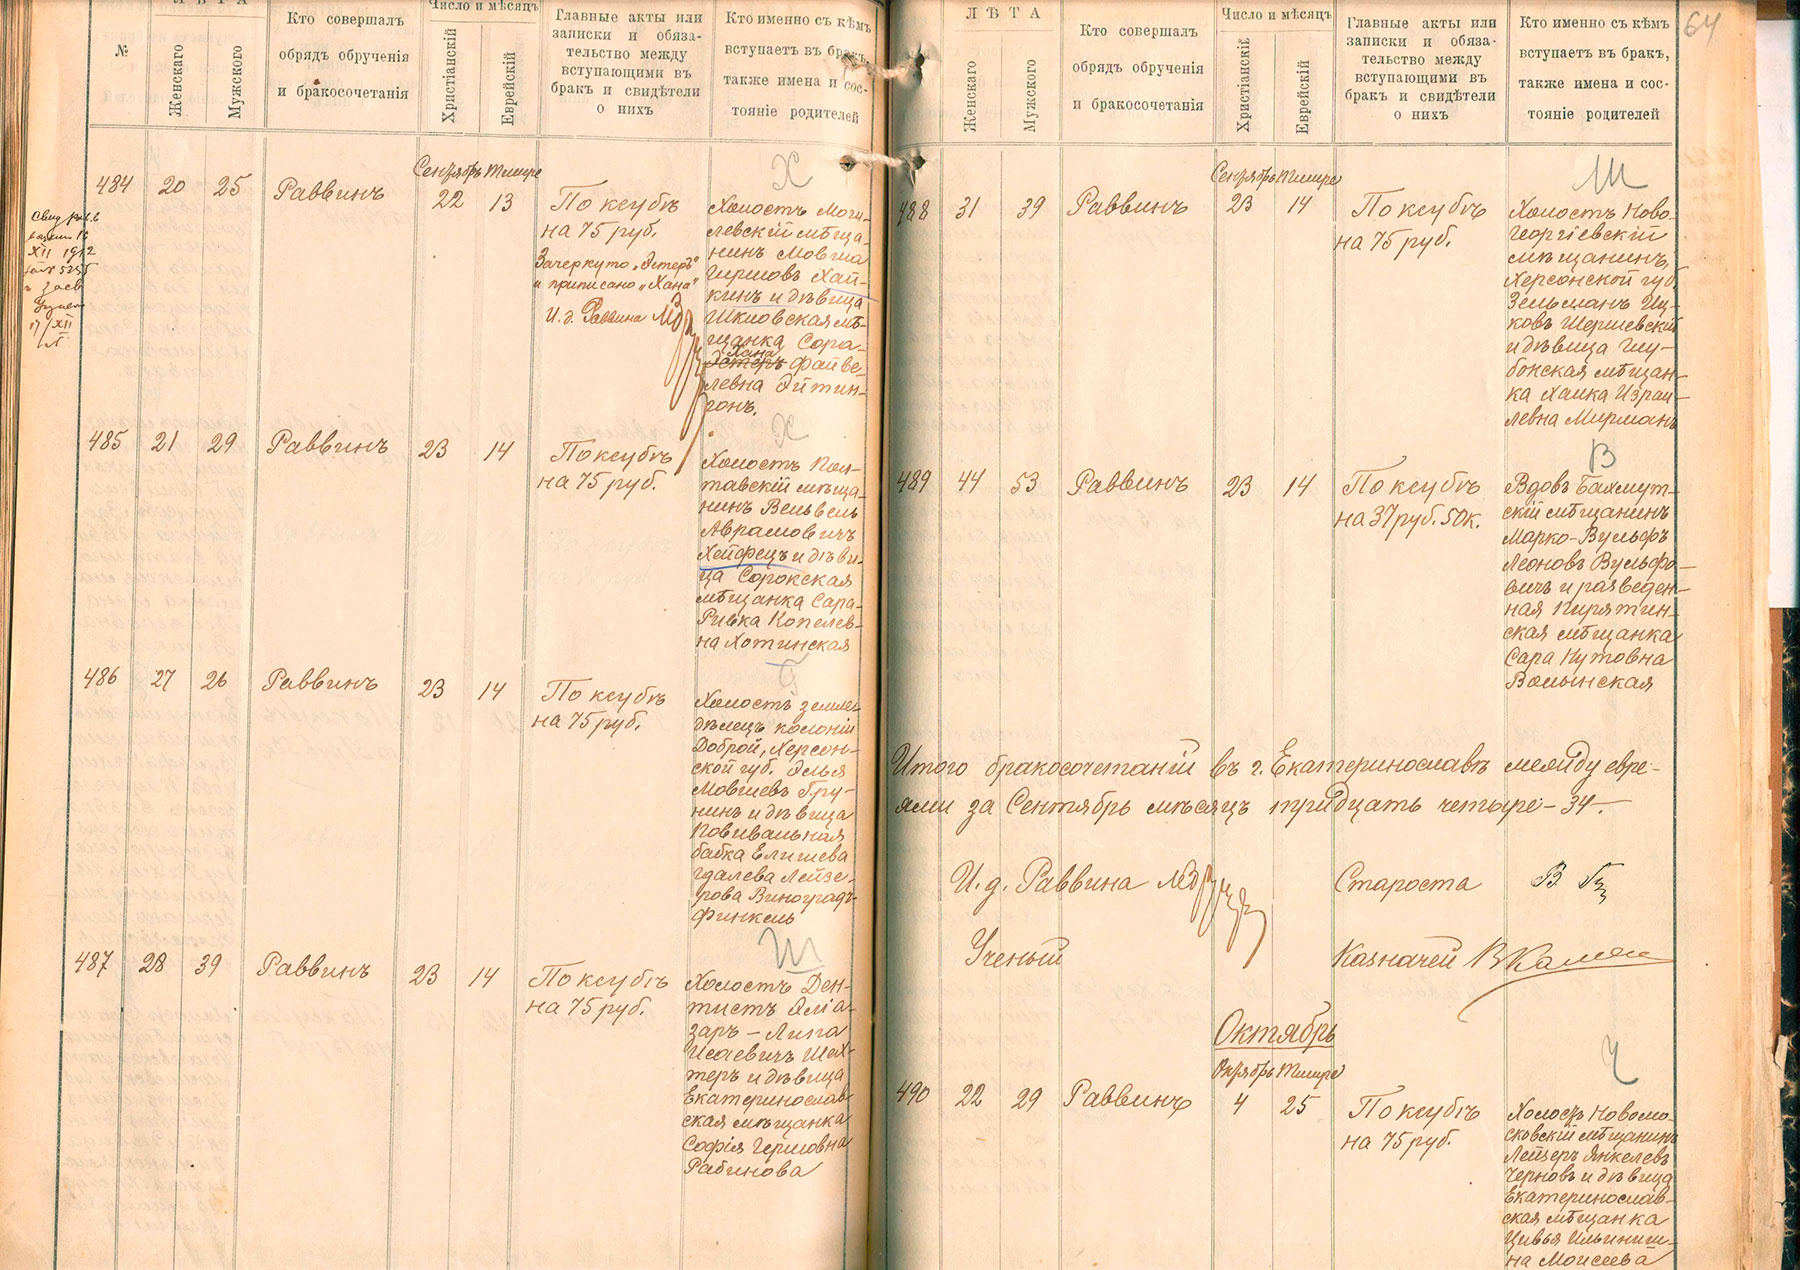 №
ЛѢТА
Женскаго
Мужского
Кто совершалъ
обрядъ обрученія
и бракосочетанія
Число и мѣсяцъ
Христіанскій
Еврейскій
Главные акты или
записки и обяза-
тельство между
вступающими въ
бракъ и свидѣтели
о нихъ
Кто именно съ кѣмъ
вступаетъ въ бракъ,
также имена и сос-
тояніе родителей
Сентябрь Тишре
484 20 25 Раввинъ 22 13
По ксубѣ
на 75 руб.
Зачеркуто „Эстеръ"
и приписано „Хана"
И. д. Раввина
Х
Холостъ Моги-
левскій мѣща-
нинъ Мовша
Гиршовъ Хай-
кинъ и дѣвица
Шкловская мѣ-
щанка Сора-
Хана
Эстеръ Файве-
левна Эйтин-
гонъ.
XII 1912
17/XII
485 21 29 Раввинъ 23 14
По ксубѣ
на 75 руб.
Х
Холостъ Пол-
тавскій мѣща-
нинъ Вельвель
Аврамовичъ
Хейфецъ и дѣви-
ца Сорокская
мѣщанка Сара-
Ривка Копелев-
на Хотинская
486 27 26 Раввинъ 23 14
По ксубѣ
на 75 руб.
Г
Холостъ земле-
дѣлецъ колоніи
Доброй, Херсон-
ской губ. Элья
Мовшевъ Гру-
нинъ и дѣвица
Повивальная
бабка Елишева
Гдалева Лейзе-
рова Виноградъ-
Финкель
487 28 39 Раввинъ 23 14
По ксубѣ
на 75 руб.
Ш
Холостъ Ден-
тистъ Эліа-
заръ-Липа
Исаевичъ Шах-
теръ и дѣвица
Екатеринослав-
ская мѣщанка
Софія Гершовна
Рабинова
64
ЛѢТА
Женскаго
Мужского
Кто совершалъ
обрядъ обрученія
и бракосочетанія
Число и мѣсяцъ
Христіанскій
Еврейскій
Главные акты или
записки и обяза-
тельство между
вступающими въ
бракъ и свидѣтели
о нихъ
Кто именно съ кѣмъ
вступаетъ въ бракъ,
также имена и сос-
тояніе родителей
Сентябрь Тишре
488 31 39 Раввинъ 23 14
По ксубѣ
на 75 руб.
Ш
Холостъ Ново-
Георгіевскій
мѣщанинъ,
Херсонской губ.
Зельманъ Иц-
ковъ Шершевскій
и дѣвица Глу-
бокская мѣщан-
ка Хайка Израи-
левна Мирманъ
489 44 53 Раввинъ 23 14
По ксубѣ
на 37 руб. 50 к.
В
Вдовъ Бахмут-
скій мѣщанинъ
Марко-Вульфъ
Леоновъ Вульфо-
вичъ и разведен-
ная Пирятин-
ская мѣщанка
Сара Нутовна
Волынская
Итого бракосочетаній въ г. Екатеринославѣ между евре-
ями за Сентябрь мѣсяцъ тридцать четыре - 34 -
И. д. Раввина
Староста
Ученый
Казначей
Октябрь
Октябрь Тишре
490 22 29 Раввинъ 4 25
По ксубѣ
на 75 руб.
Ч
Холостъ Новомо-
сковскій мѣщанинъ
Лейзеръ Янкелевъ
Черновъ и дѣвица
Екатеринослав-
ская мѣщанка
Цивья Ильинич-
на Моисеева